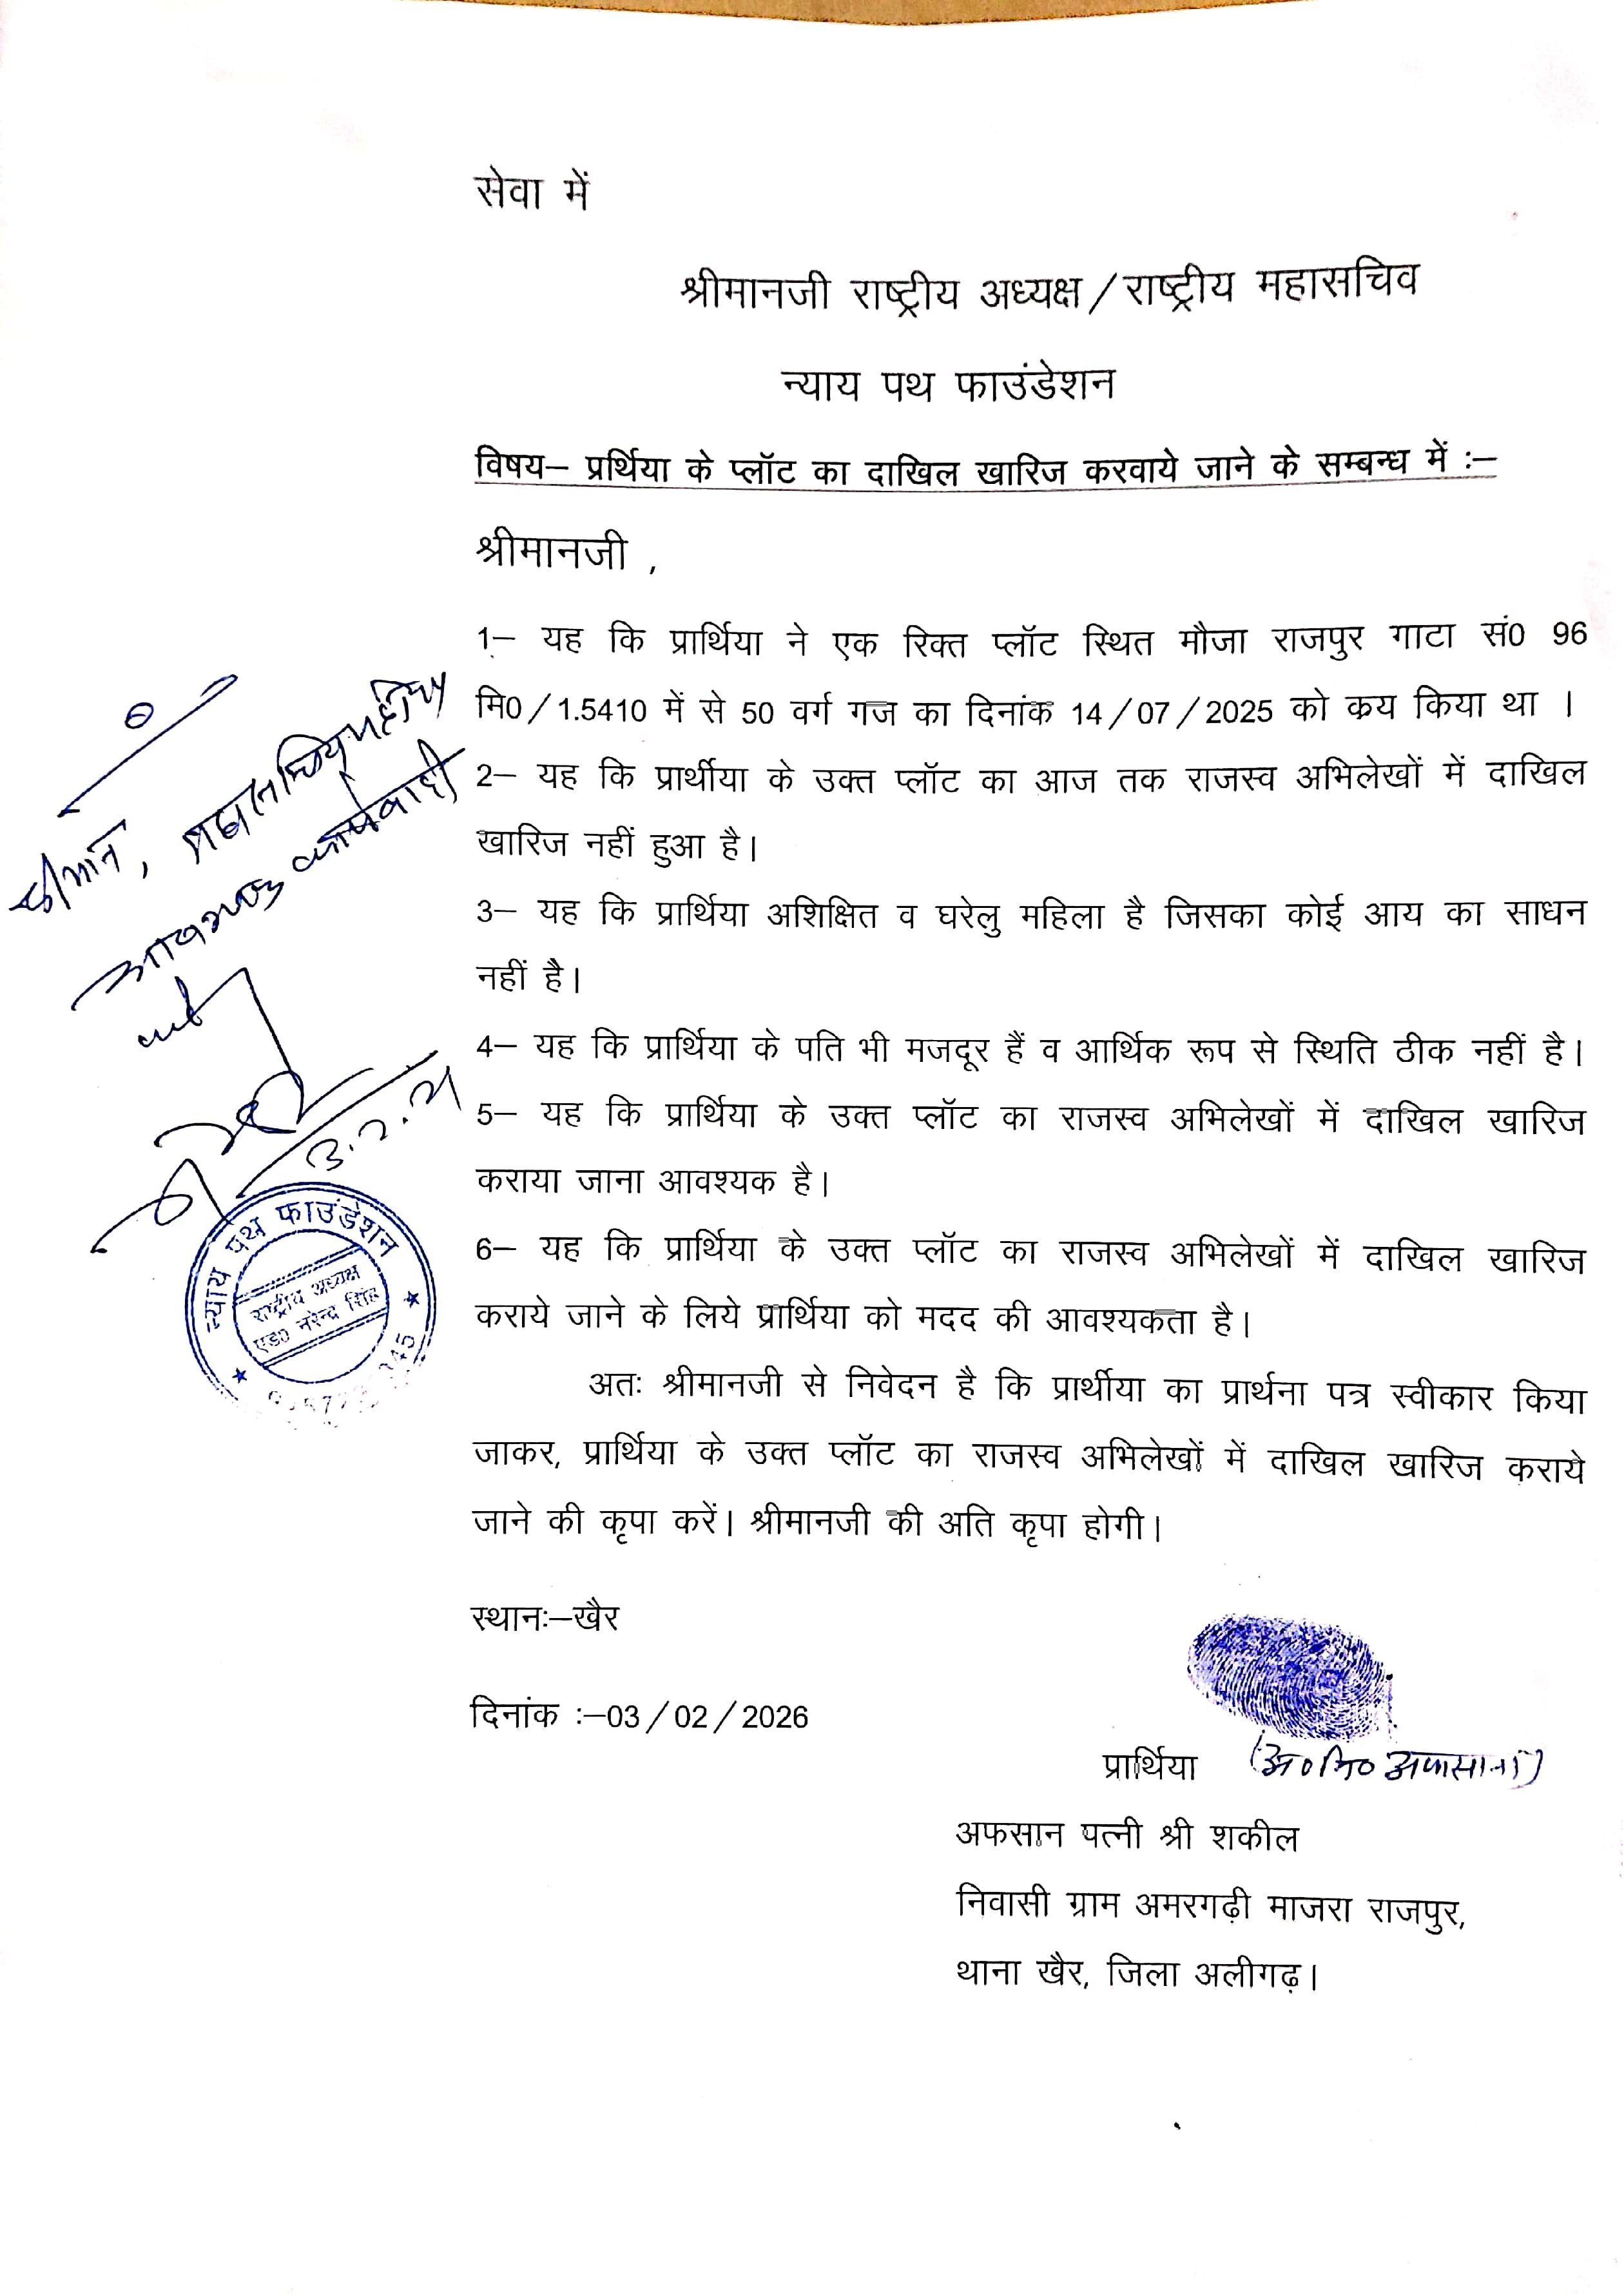 सेवा में
श्रीमानजी राष्ट्रीय अध्यक्ष/राष्ट्रीय महासचिव
न्याय पथ फाउंडेशन
विषय– प्रर्थिया के प्लॉट का दाखिल खारिज करवाये जाने के सम्बन्ध में :–
श्रीमानजी ,
1– यह कि प्रार्थिया ने एक रिक्त प्लॉट स्थित मौजा राजपुर गाटा सं0 96
मि0/1.5410 में से 50 वर्ग गज का दिनांक 14/07/2025 को क्रय किया था ।
2– यह कि प्रार्थीया के उक्त प्लॉट का आज तक राजस्व अभिलेखों में दाखिल
खारिज नहीं हुआ है।
3– यह कि प्रार्थिया अशिक्षित व घरेलु महिला है जिसका कोई आय का साधन
नहीं है।
4– यह कि प्रार्थिया के पति भी मजदूर हैं व आर्थिक रूप से स्थिति ठीक नहीं है।
5– यह कि प्रार्थिया के उक्त प्लॉट का राजस्व अभिलेखों में दाखिल खारिज
कराया जाना आवश्यक है।
6– यह कि प्रार्थिया के उक्त प्लॉट का राजस्व अभिलेखों में दाखिल खारिज
कराये जाने के लिये प्रार्थिया को मदद की आवश्यकता है।
अतः श्रीमानजी से निवेदन है कि प्रार्थीया का प्रार्थना पत्र स्वीकार किया
जाकर, प्रार्थिया के उक्त प्लॉट का राजस्व अभिलेखों में दाखिल खारिज कराये
जाने की कृपा करें। श्रीमानजी की अति कृपा होगी।
स्थानः–खैर
दिनांक :–03/02/2026
प्रार्थिया (अ0नि0 अफसाना)
अफसान पत्नी श्री शकील
निवासी ग्राम अमरगढ़ी माजरा राजपुर,
थाना खैर, जिला अलीगढ़।
श्रीमान, महासचिव महोदय
आवश्यक कार्यवाही
करें
न्याय पथ फाउंडेशन
राष्ट्रीय अध्यक्ष
एड0 नरेन्द्र सिंह